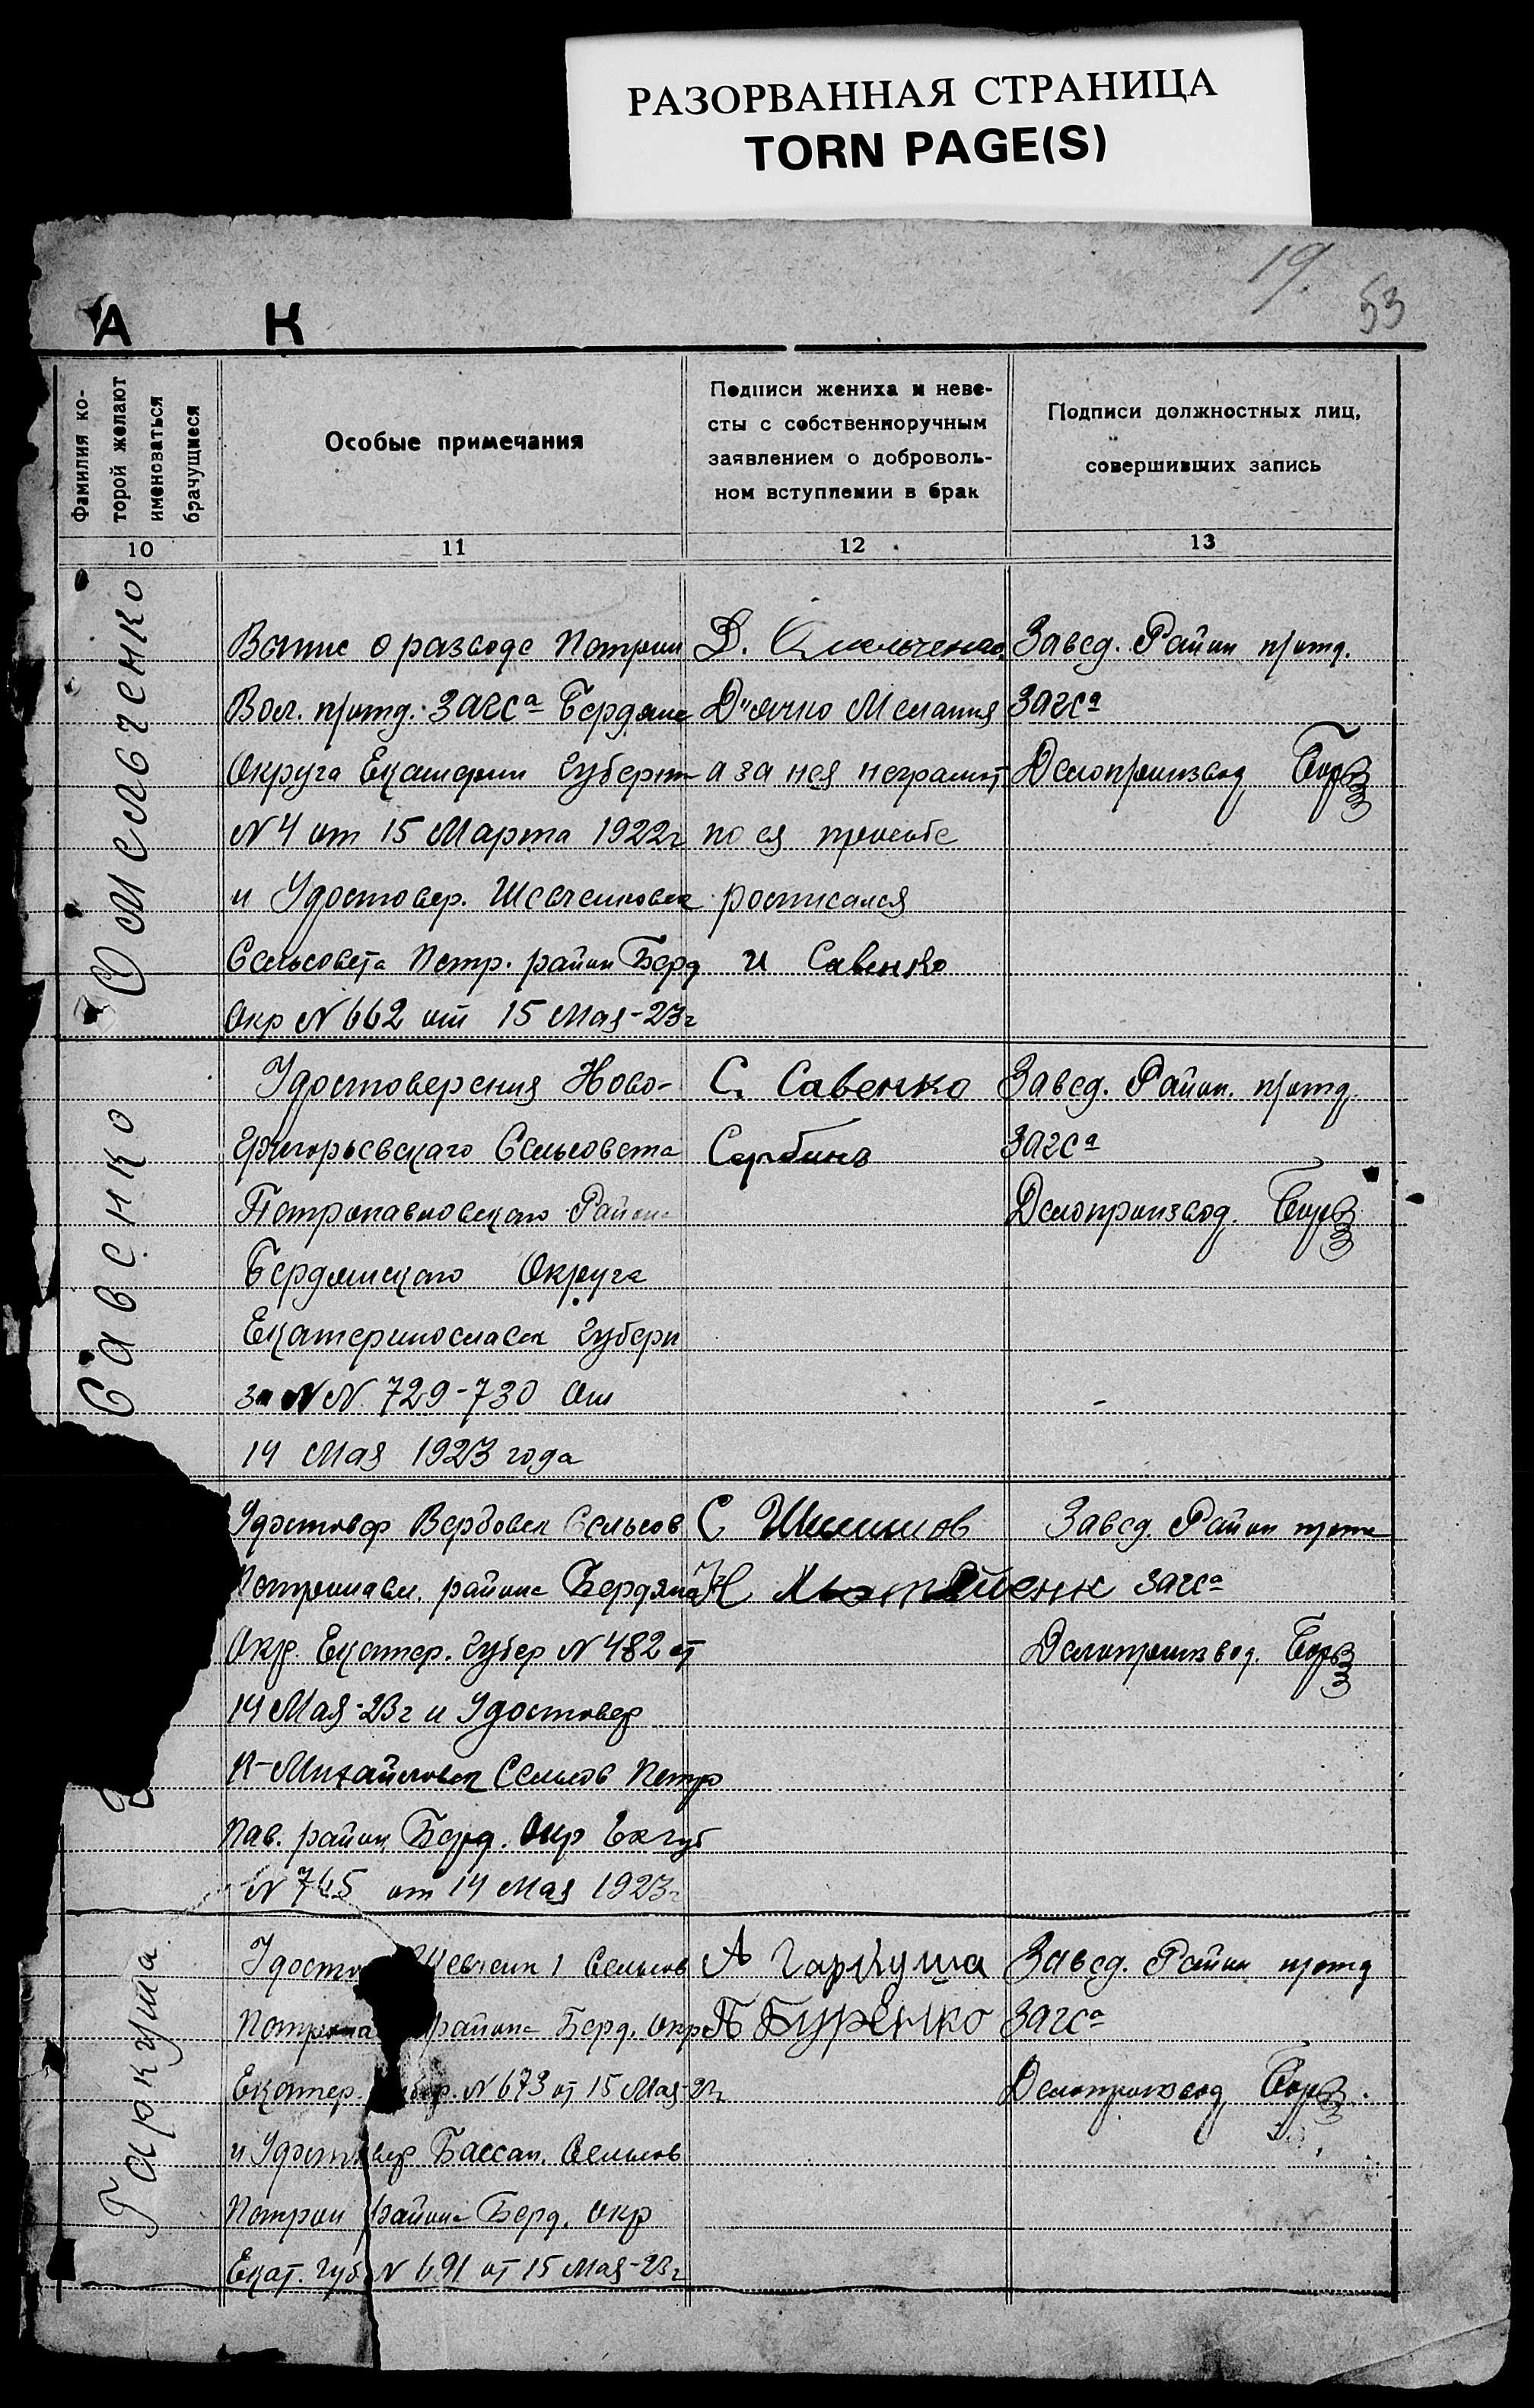 РАЗОРВАННАЯ СТРАНИЦА
TORN PAGE(S)
19.
53
А К
Фамилия ко-
торой желают
именоваться
брачущиеся
Особые примечания
Подписи жениха и неве-
сты с собственноручным
заявлением о доброволь-
ном вступлении в брак
Подписи должностных лиц,
совершивших запись
10
11
12
13
Омельченко
о разводе Петроп
Вол. п/отд. ЗАГСа Бердянс
Округа Екатерин Губерн
N 4 от 15 Марта 1922г
и Удостовер. Шевченковск
Сельсовета Петр. район Берд
Окр N 662 от 15 Мая-23г
Д. Омельченко
Мелания
а за нея неграмот
по ея просьбе
росписался
И Савенко
Завед. Район п/отд.
ЗАГСа
Делопроизвод
Савенко
Удостоверения Ново-
григорьевскаго Сельсовета
Петропавловского Района
Бердянского Округа
Екатеринославск Губерн
за NN 729-730 От
14 Мая 1923 года
С. Савенко
Завед. Район. п/отд
ЗАГСа
Делопроизвод.
Удостовер Вербовск Сельсов
Петропавл. района Бердянск
Окр. Екатер. Губер N 482 от
14 Мая-23г и Удостовер
Н-Михайловск Сельсов Петро
Пав. район Берд. Окр Ек губ
N 745 от 14 Мая 1923г
С
Н
Завед. Район п/отд
ЗАГСа
Делопроизвод.
Гаркуша
Шевченк 1 Сельсов
района Берд. Окр
Екатер. N 673 от 15 Мая-23г
и Удостовер Бассан. Сельсов
Петроп района Берд. Окр
Екат. Губ N 691 от 15 Мая-23г
А Гаркуша
П Буренко
Завед. Район п/отд
ЗАГСа
Делопроизвод